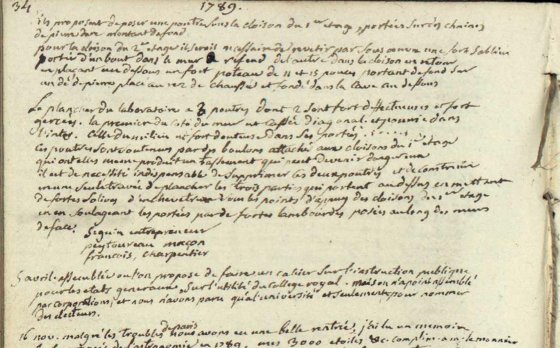 34 1789.
ils proposent de poser une poutre sous la cloison du 1er etage, portée sur des chaines
de pierre dure montant de fond
pour la cloison du 2e etage il seroit necessaire de revetir par sous oeuvre une forte sabliere
portée d'un bout dans le mur de refend de l'autre dans la cloison en retour
en plaçant au dessous un fort poteau de 11 et 15 pouces portant de fond sur
un dé de pierre placé au rez de chaussée et fondé dans la cave au dessous
Le plancher du laboratoire a 3 poutres dont 2 sont fort defectueuses et fort
gercées. la premiere du coté du mur est cassée diagonal et pourrie dans
l'inter. Celle du milieu est fort douteuse dans ses portées
les poutres sont soutenues par des boulons attaché aux cloisons du 1er etage
qui ont elles meme produit un tassement qui peut devenir dangereux
il est de necessité indispensable de supprimer les deux poutres et reconstruire
en une seule travée de plancher les trois parties qui portent au dessus en mettant
de fortes solives d'enchevetrure sous les points d'appuy des cloisons du 1er etage
en en soulageant les portées par de fortes lambourdes posées au long des murs
de face.
Seguin entrepreneur
peytoureau maçon
francois, charpentier
5 avril. assemblée ou l'on propose de faire un cahier sur l'instruction publique
pour les etats generaux, sur l'utilité du college royal. mais on n'a point assemblé
par corporations, et nous n'avons paru qu'al'université et seulement pour nommer
des electeurs.
16 nov. malgré les troubles de paris nous avons eu une belle rentrée, j'ai lu un memoire
de l'astronomie en 1789. mes 3000 etoiles &c. complim. a m. le monnier